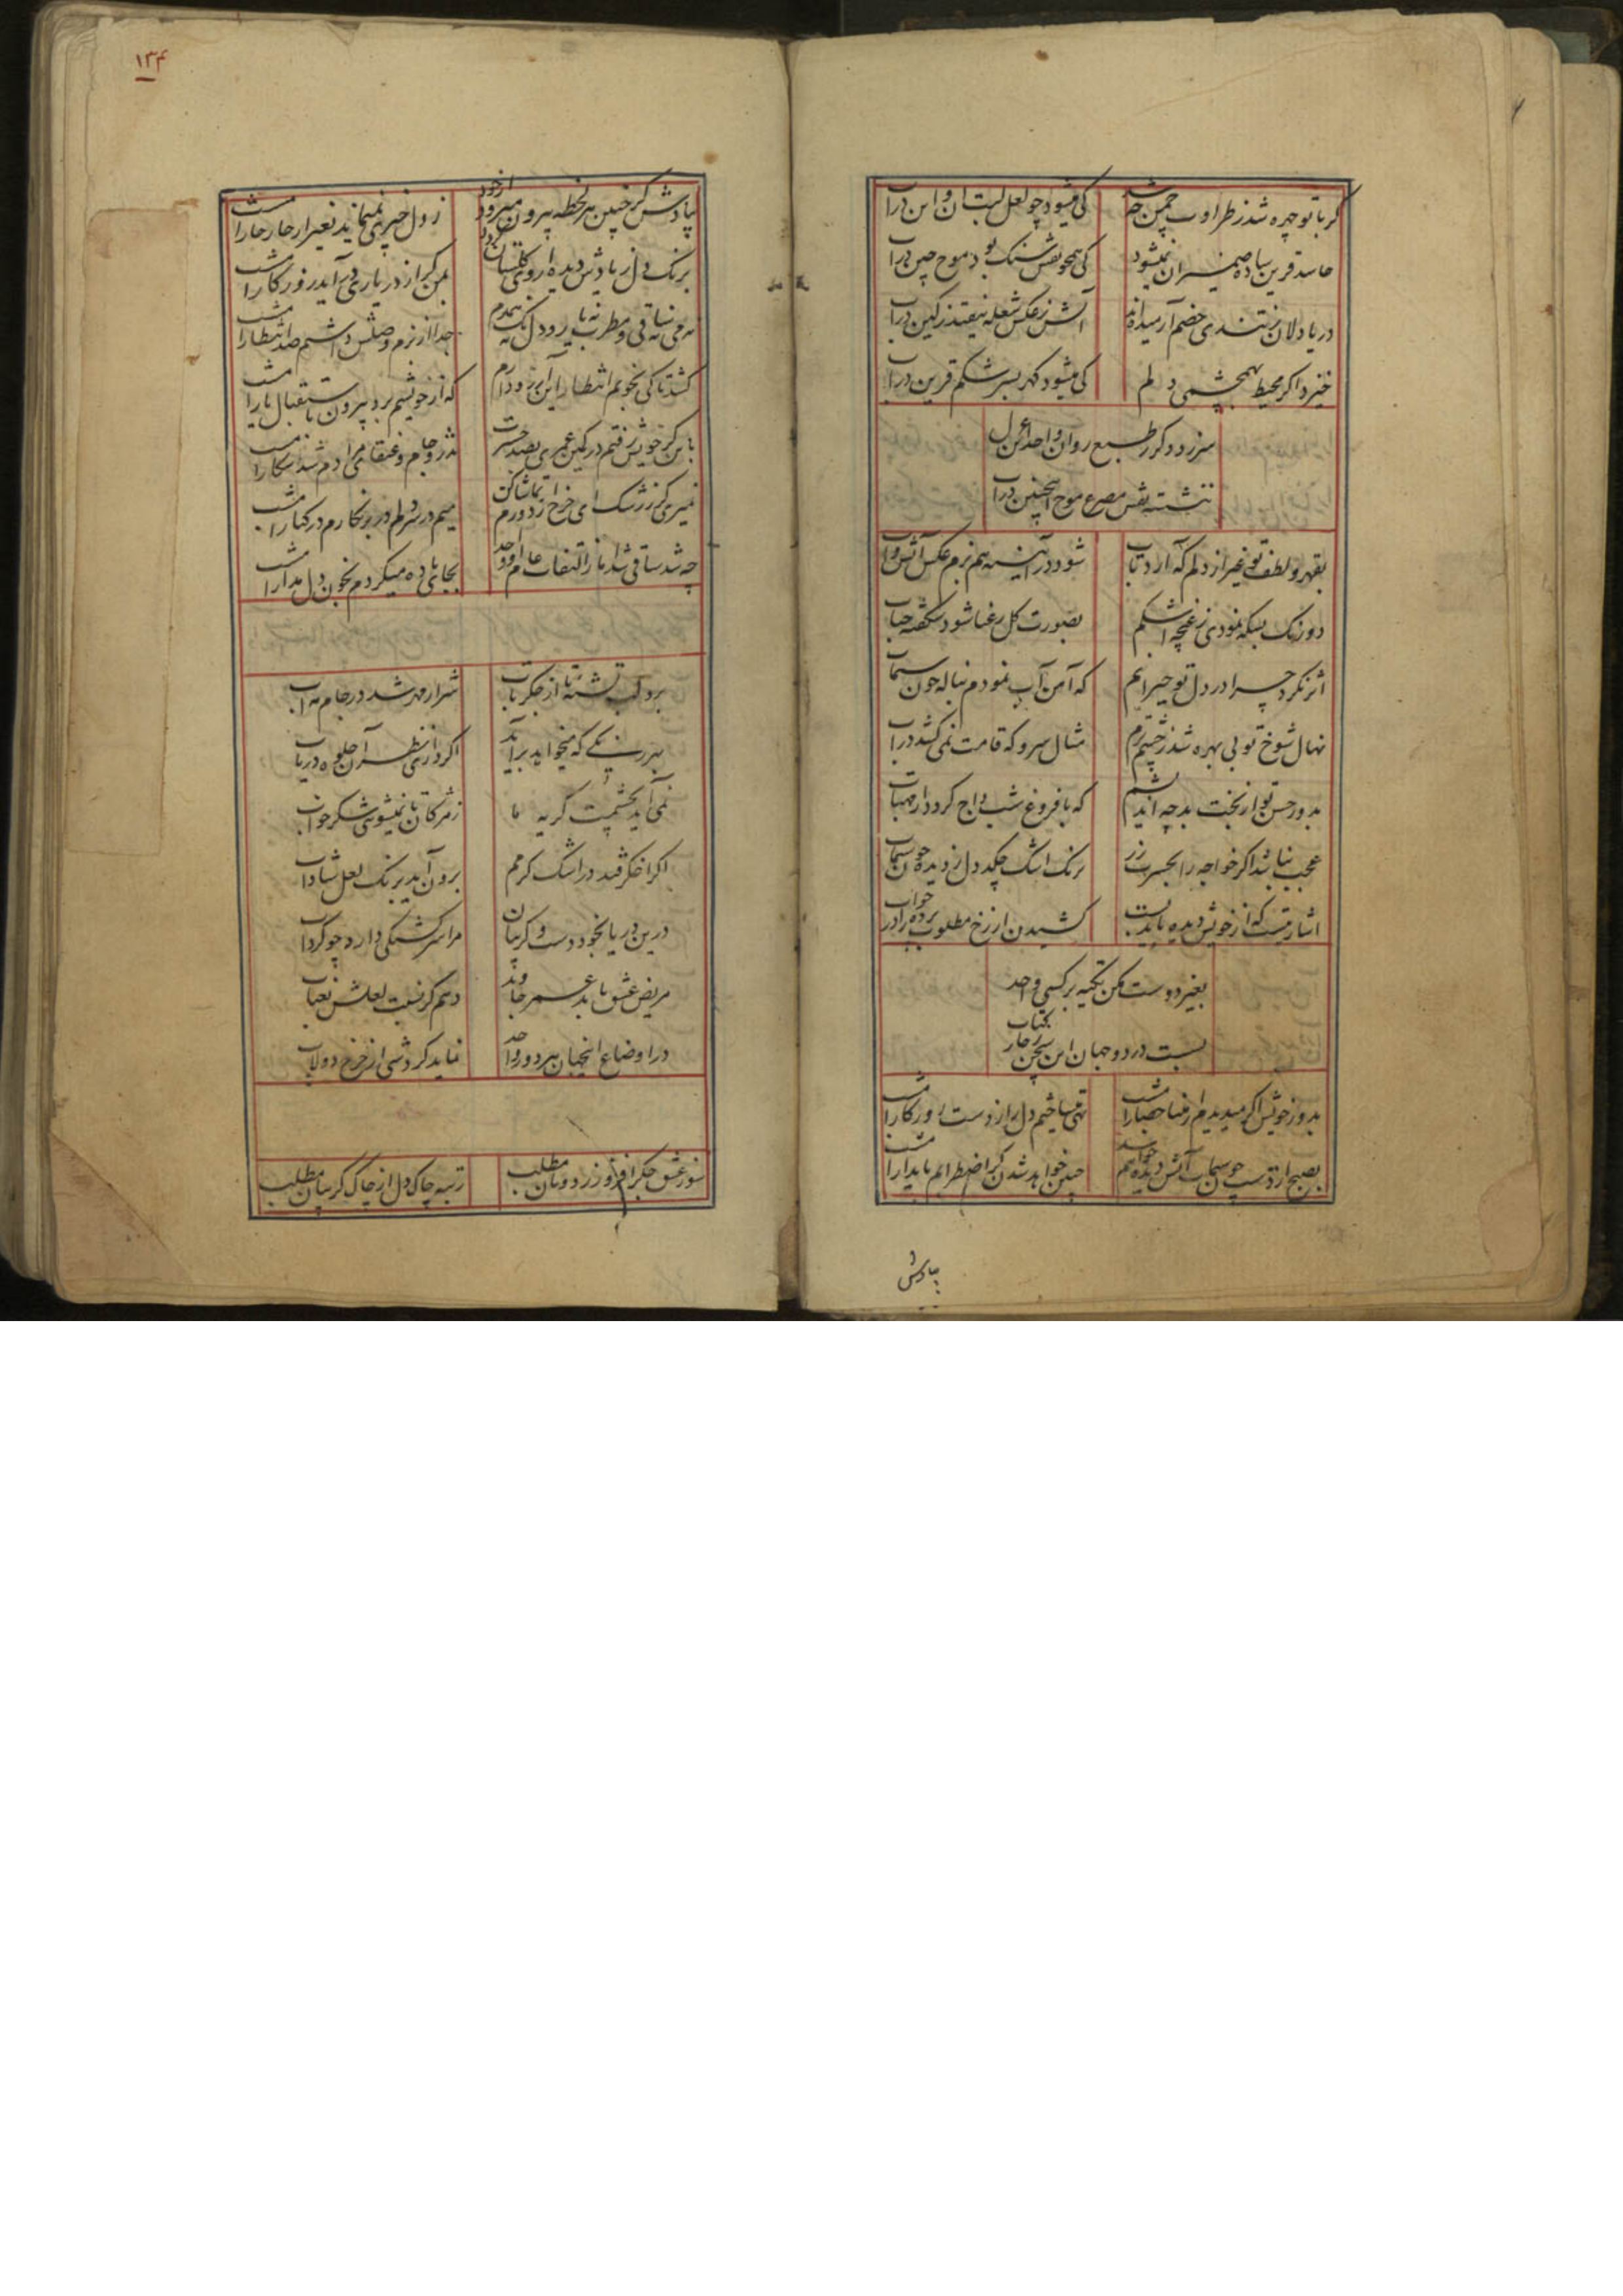 گر با تو چهره شد ز طراوت چمن چه شد
کی میشود چو لعل لبت آن و این در آب
حاسد قرین ساده ضمیران نمیشود
کی همچو نقش سنگ بود موج چین در آب
دریا دلان ز تندی خصم آرمیده اند
آتش ز عکس شعله نیفتد ز کین در آب
خیزد اگر محیط بهمچشمی دلم
کی میشود گهر بسر شکم قرین در آب
سر زد دگر ز طبع روان واحد این غزل
ننشسته نقش مصرع موج اینچنین در آب
بقهر و لطف تو غیر از دلم که آرد تاب
شود در آینه هم بزم عکس آتش و آب
دو رنگ بسکه نمودی ز غمچه اشکم
بصورت گل رعنا شود شکفته حباب
اثر نکرد چرا در دل تو حیرانم
که آهن آب نمودم بناله چون سیماب
نهال شوخ تو بی بهره شد ز چشم ترم
مثال سرو که قامت نمی کشد در آب
بدور حسن تو از بخت بد چه اندیشم
که با فروغ شب داج کرد دار مهتاب
عجب نباشد اگر خواجه را بحسرت زر
برنگ اشک چکد دل ز دیده چون سیماب
اشارتیست که از خویش دیده باید بست
کشیدن از رخ مطلوب پرده را در خواب
بغیر دوست مکن تکیه بر کسی واحد
بس است در دو جهان این سخن ز چار کتاب
بروز خویش اگر میدیدم آن رخسار را امشب
تهی میساختم دل را ز دست روزگار امشب
بصبح از تست چون سیماب آتش دیده خواهم شد
چنین خواهد شدن گر اضطرابم پایدار امشب
بیادش
۱۳۴
بیادش گر چنین هر لحظه بیرون میرود از خود
ز دل چیزی نمیماند بغیر از خار خار امشب
برنگ دل ز یادش دیده ام روی گلستان کرد
بمن گر از در یاری در آید روزگار امشب
نه می نه ساقی و مطرب نه یار و دل نه همدم
جدا از بزم وصلش داشتم صد انتظار امشب
کشد تا کی بخویم انتظار این آرزو دارم
که از خویشم برد بیرون باستقبال یار امشب
باین کز خویش رفتم در کمین عمری بصد حسرت
نشد رو جام و عنقای مرادم شد شکار امشب
نمیری گر ز رشک ای چرخ زد ورم تماشا کن
میم در سر دلم در بر نگارم در کنار امشب
چه شد ساقی شد از التفات عام او واحد
بجای باده میکردم بخون دل مدار امشب
برد لب تشنه تاب از جگر تاب
شرار مهر شد در جام مه آب
بهر رنگی که میخواهد برآید
اگر دزدی نظر آن جلوه دریاب
نمی آید بچشمت گریه ما
ز مژگان تا نمیشوی شکر خواب
اگر اخگر فتد در اشک گرمم
برون آید برنگ لعل شاداب
درین دریا بخود دست و گریبان
مرا سرگشتگی دارد چو گرداب
مریض عشق یابد عمر جاوید
دهم گر نسبت لعلش بعناب
در اوضاع اینجهان هر دو روز واحد
نماید گردشی از چرخ دولاب
سوز عشق جگر افروز ز دونان مطلب
رتبه چاک دل از چاک گریبان مطلب